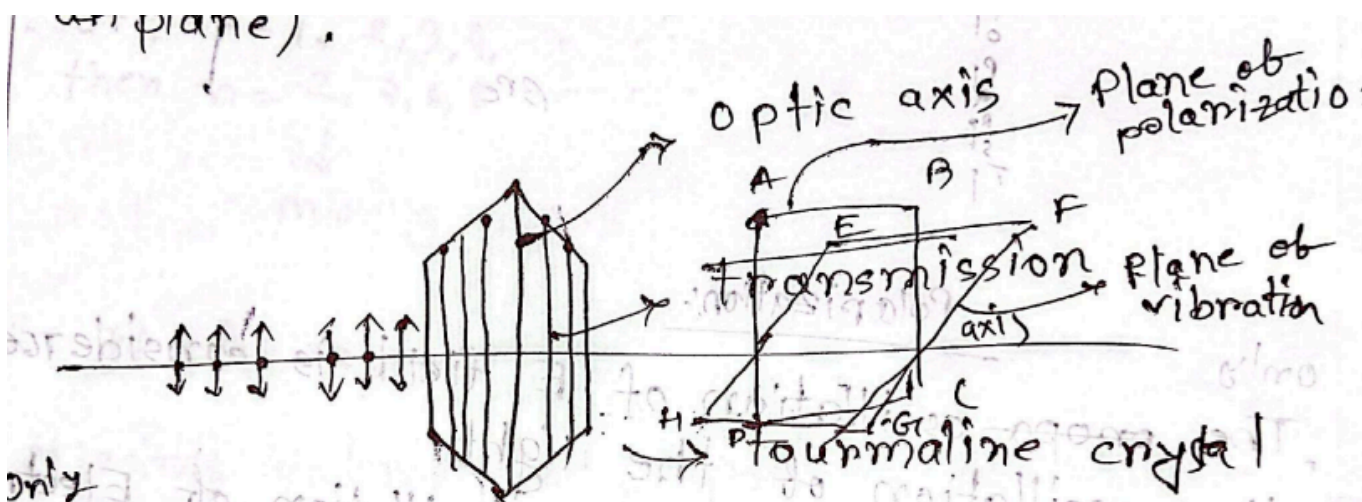 plane).
optic axis
plane ob
polarizatio
A
B
E
F
transmission
axis
plane ob
vibration
H
P
G
C
tourmaline crystal
only